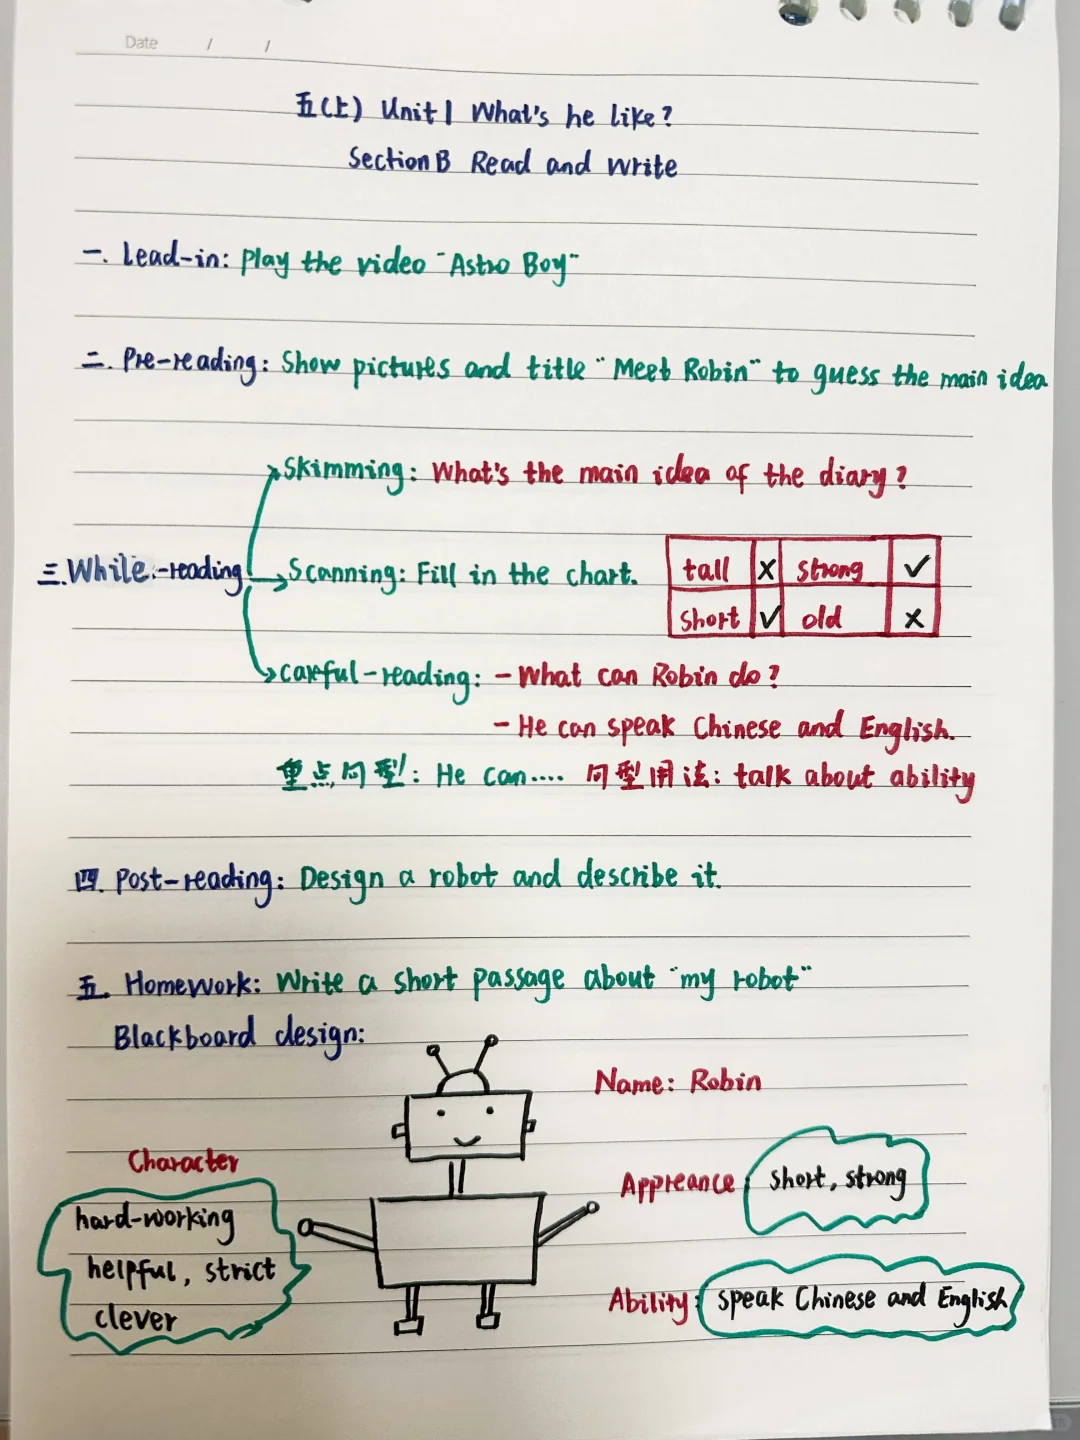 Date / /
五(上) Unit 1 What's he like?
Section B Read and write
一. Lead-in: Play the video "Astro Boy"
二. Pre-reading: Show pictures and title "Meet Robin" to guess the main idea
Skimming: What's the main idea of the diary?
三.While-reading
Scanning: Fill in the chart.
tall × strong ✓
short ✓ old ×
Careful-reading: - What can Robin do?
- He can speak Chinese and English.
重点句型: He can.... 句型用法: talk about ability
四. Post-reading: Design a robot and describe it.
五. Homework: Write a short passage about "my robot"
Blackboard design:
Name: Robin
Character
hard-working
helpful, strict
clever
Appreance: short, strong
Ability: speak Chinese and English